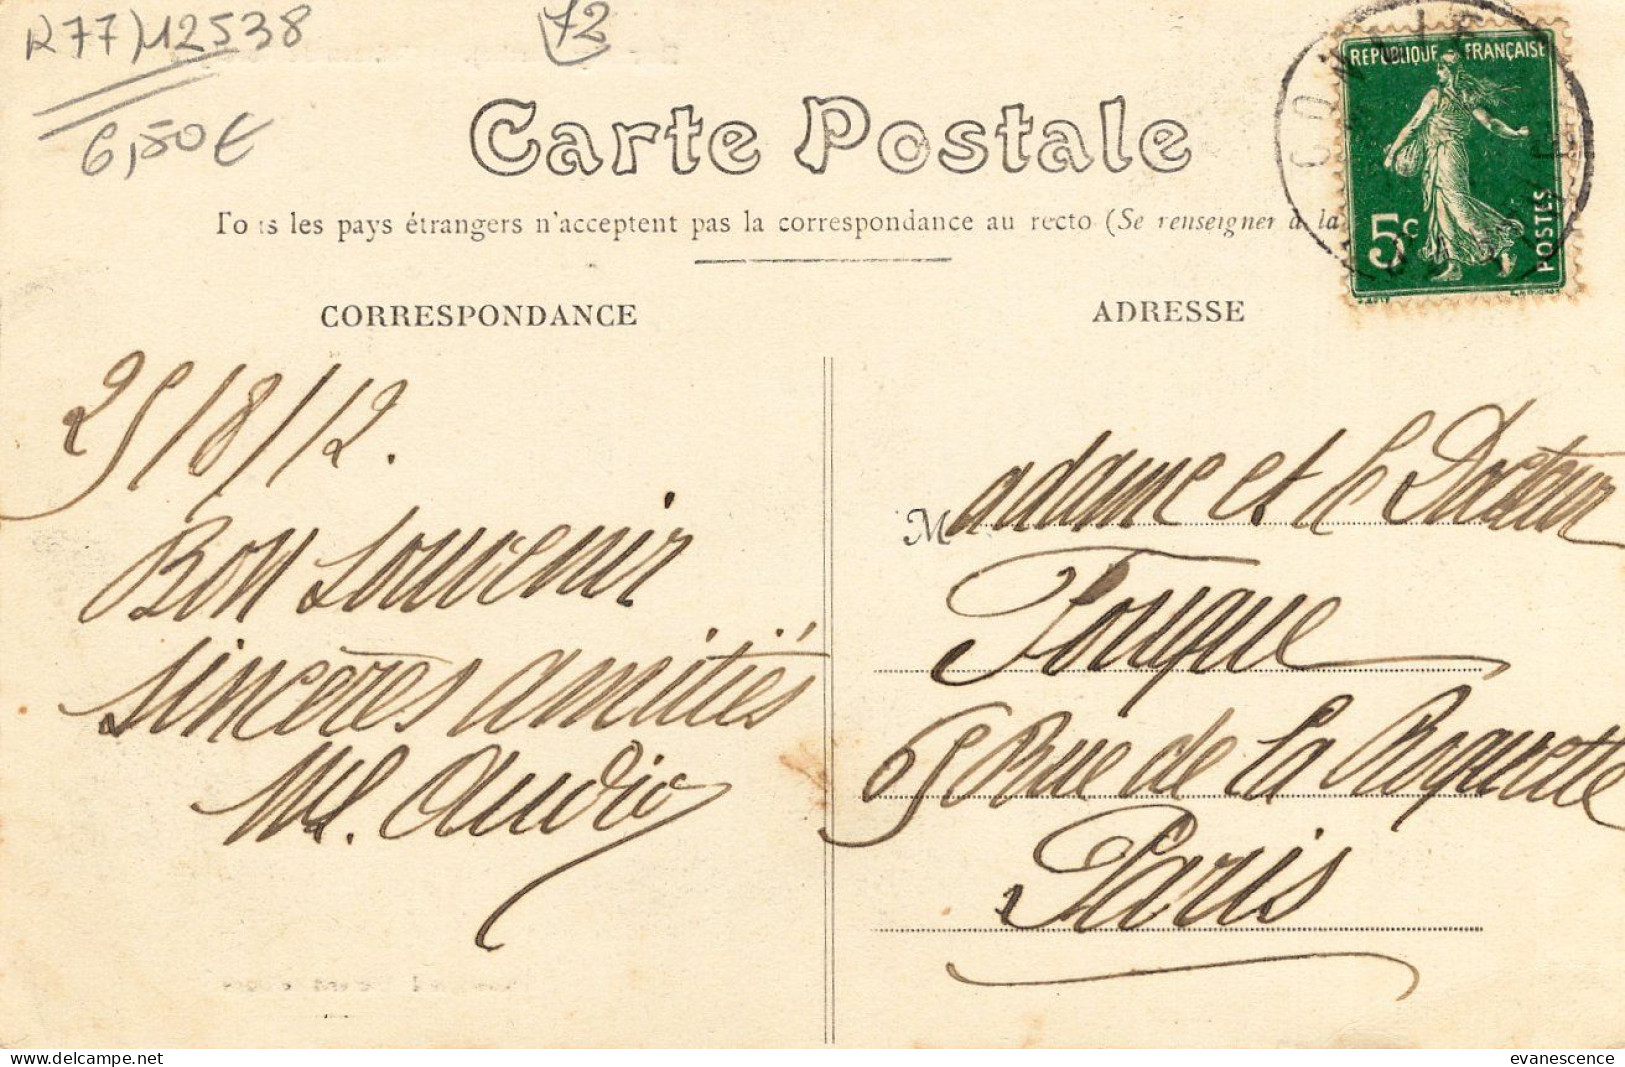 R77)12538
6,50€
72
Carte Postale
Tous les pays étrangers n'acceptent pas la correspondance au recto (Se renseigner à la
REPUBLIQUE FRANÇAISE
5c
POSTES
CORRESPONDANCE
25/8/12.
Bon souvenir
sincères amitiés
ADRESSE
Madame et le Docteur
Fouque
65 Rue de la Roquette
Paris
delcampe.net
evanescence